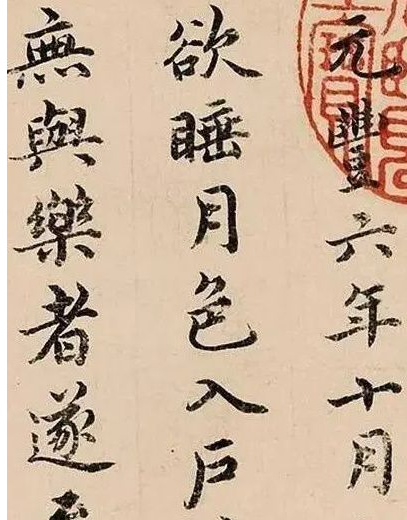 元豐六年十月
欲睡月色入戶
無與樂者遂至